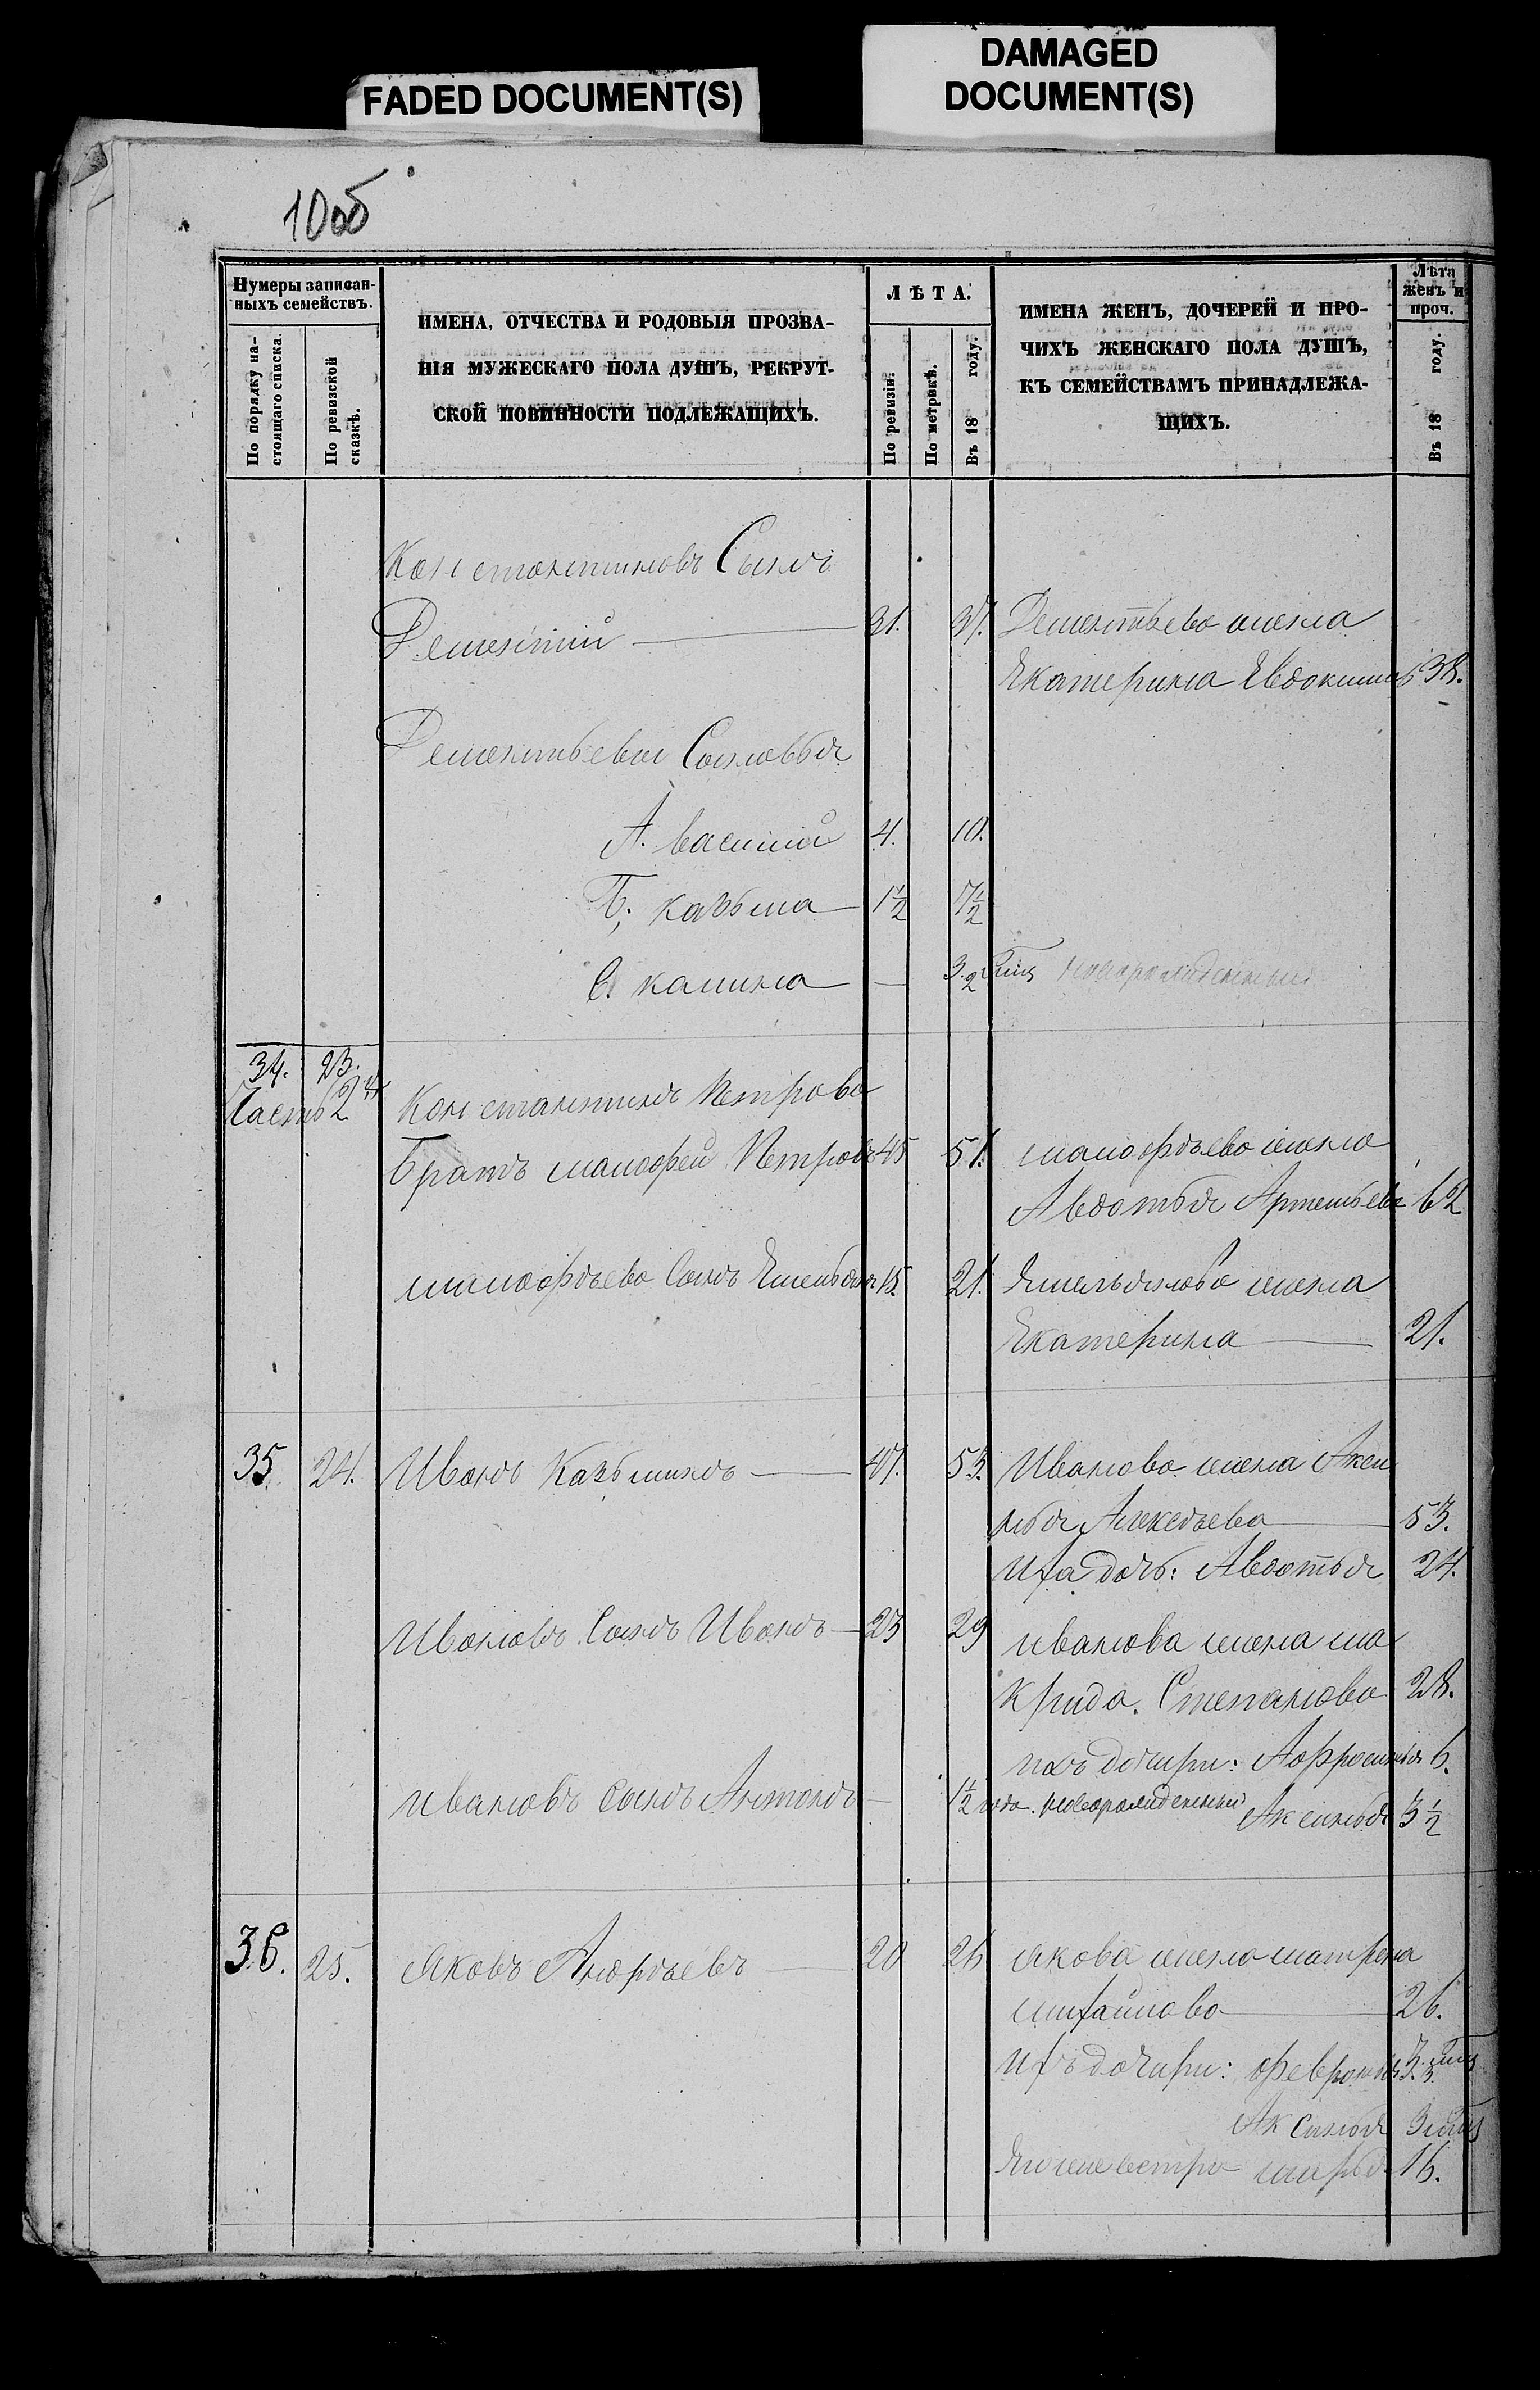 FADED DOCUMENT(S)
DAMAGED
DOCUMENT(S)
10об
Нумеры записан-
ныхъ семействъ.
По порядку на-
стоящаго списка.
По ревизской
сказкѣ.
ИМЕНА, ОТЧЕСТВА И РОДОВЫЯ ПРОЗВА-
НІЯ МУЖЕСКАГО ПОЛА ДУШЪ, РЕКРУТ-
СКОЙ ПОВИННОСТИ ПОДЛЕЖАЩИХЪ.
ЛѢТА.
По ревизіи.
По метрикѣ.
Въ 18 году.
ИМЕНА ЖЕНЪ, ДОЧЕРЕЙ И ПРО-
ЧИХЪ ЖЕНСКАГО ПОЛА ДУШЪ,
КЪ СЕМЕЙСТВАМЪ ПРИНАДЛЕЖА-
ЩИХЪ.
Лѣта
женъ и
проч.
Въ 18 году.
Константиновъ Сынъ
Дементій 31. 37. Дементьева жена
Екатерина Евдокимов 38.
Дементьевы Сыновья
А. василій 4. 10.
Б; казьма 1½ 7½
В. калина — новорожденный
34. 23.
Часть 2я Константина Петрова
Братъ малофей Петровъ 45 51. малофѣева жена
Авдотья Артемьева 62
малофѣева Сынъ Емельянъ 15. 21. Емельянова жена
Екатерина 21.
35 24. Иванъ Казьминъ 47. 53. Иванова жена Аксинья Алексѣева 53.
Иха дочь: Авдотья 24.
Ивановъ Сынъ Иванъ 23 29 иванова жена ма
крида. Степанова 28.
ихъ дочири: Афросинья 6.
ивановъ сынъ Антонъ — 1½ года. новорожденный Аксинья 3½
36. 25. Яковъ Андрѣевъ 20 26 якова жена матрена
михайлова 26.
Ихъ дочири: февронья
Аксинья
Ево же сестра марья 16.